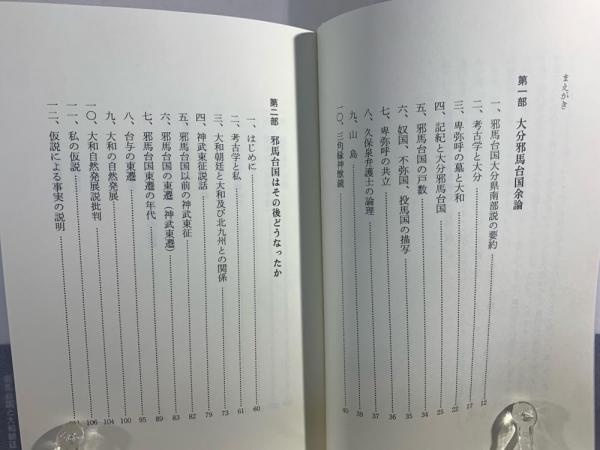 まえがき
第一部 大分邪馬台国余論
一、邪馬台国大分県南部説の要約 12
二、考古学と大分 17
三、卑弥呼の墓と大和 22
四、記紀と大分邪馬台国 25
五、邪馬台国の戸数 34
六、奴国、不弥国、投馬国の描写 35
七、卑弥呼の共立 36
八、久保泉弁護士の論理 37
九、山島 39
一〇、三角縁神獣鏡 40
第二部 邪馬台国はその後どうなったか
一、はじめに 60
二、考古学と私 61
三、大和朝廷と大和及び北九州との関係 73
四、神武東征説話 79
五、邪馬台国以前の神武東征 82
六、邪馬台国の東遷(神武東遷) 83
七、邪馬台国東遷の年代 89
八、台与の東遷 95
九、大和の自然発展 100
一〇、大和自然発展説批判 104
一一、私の仮説 106
一二、仮説による事実の説明